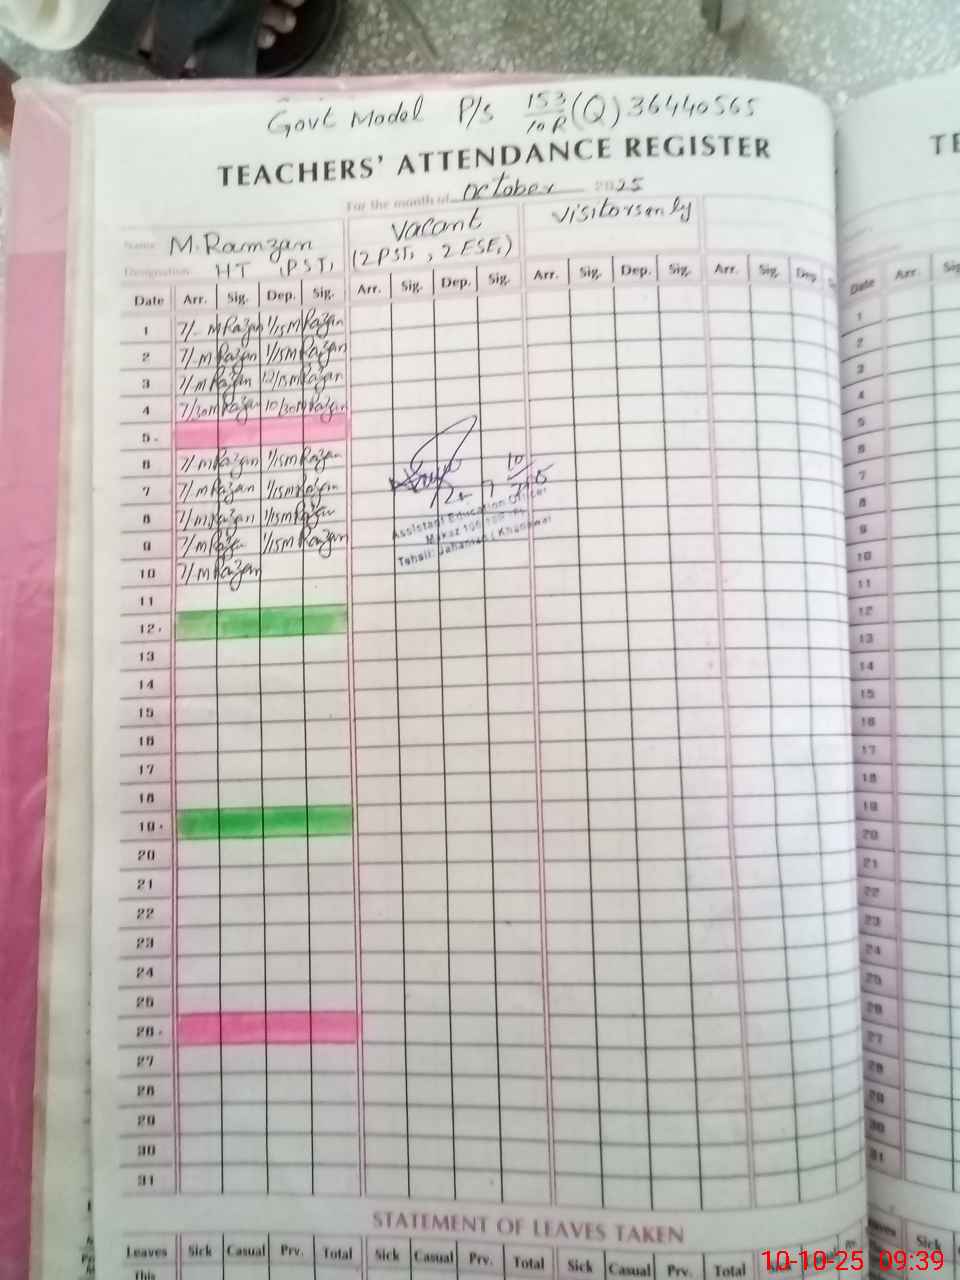 Govt Model P/S 153/10R (Q) 36440565
TEACHERS' ATTENDANCE REGISTER
For the month of October 2025
Name M. Ramzan Vacant Visitors only
Designation HT (PST) (2 PST, 2 ESE)
Date Arr. Sig. Dep. Sig. Arr. Sig. Dep. Sig. Arr. Sig. Dep. Sig. Arr. Sig. Dep.
1 7/- M Razan 1/15 M Razan
2 7/- M Razan 1/15 M Razan
3 7/- M Razan 12/15 M Razan
4 7/30 M Razan 10/30 M Razan
5
6 7/- M Razan 1/15 M Razan
7 7/- M Razan 1/15 M Razan
8 7/- M Razan 1/15 M Razan
9 7/- M Razan 1/15 M Razan
10 7/- M Razan
Assistant Education Officer
Tehsil: Jahanian (Khanewal)
11
12
13
14
15
16
17
18
19
20
21
22
23
24
25
26
27
28
29
30
31
STATEMENT OF LEAVES TAKEN
Leaves Sick Casual Prv. Total Sick Casual Prv. Total Sick Casual Prv. Total
This
TE
Date Arr. Sig
1
2
3
4
5
6
7
8
9
10
11
12
13
14
15
16
17
18
19
20
21
22
23
24
25
26
27
28
29
30
31
Sick
10-10-25 09:39